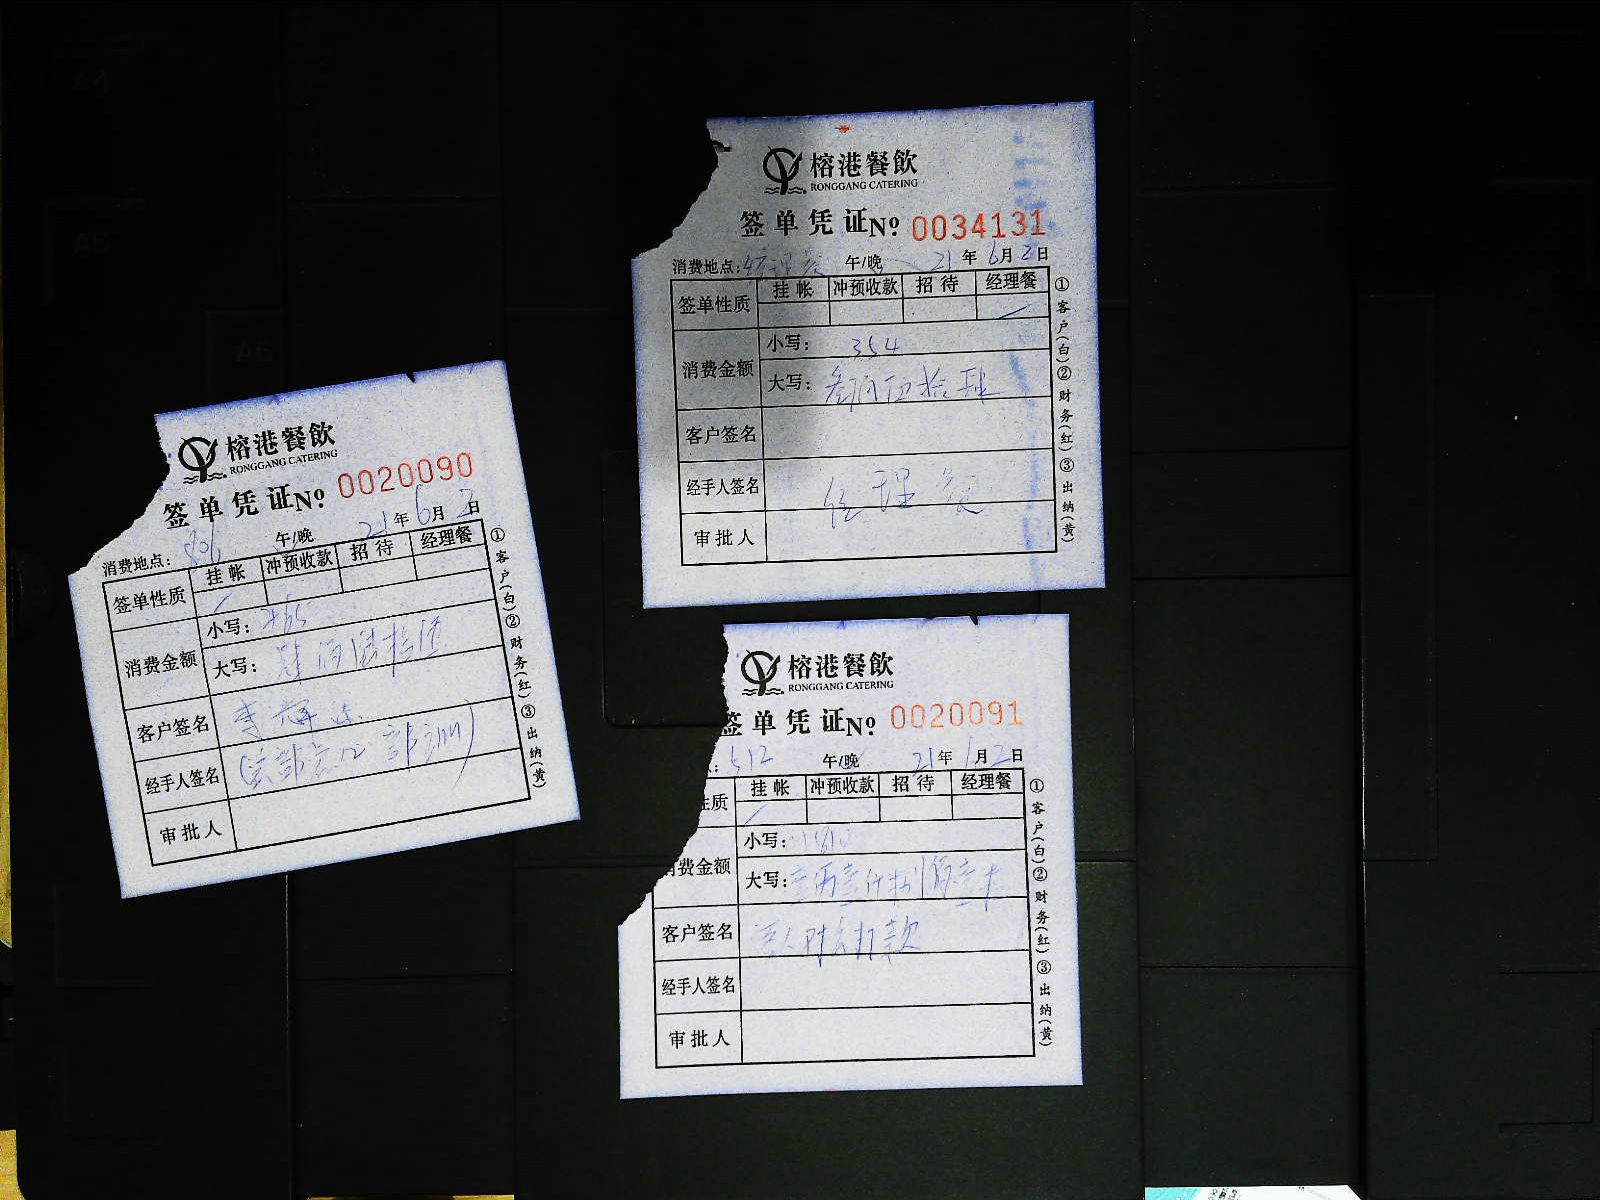 榕港餐飲
RONGGANG CATERING
签单凭证№ 0034131
消费地点:经理餐 午/晚 21年6月2日
签单性质 挂帐 冲预收款 招待 经理餐
消费金额 小写: 354
大写: 叁佰伍拾肆
客户签名
经手人签名 经理餐
审批人
①客户(白)②财务(红)③出纳(黄)
榕港餐飲
RONGGANG CATERING
签单凭证№ 0020090
消费地点: 午/晚 21年6月2日
签单性质 挂帐 冲预收款 招待 经理餐
消费金额 小写:
大写:
客户签名 李辉
经手人签名
审批人
①客户(白)②财务(红)③出纳(黄)
榕港餐飲
RONGGANG CATERING
签单凭证№ 0020091
: 512 午/晚 21年 月2日
性质 挂帐 冲预收款 招待 经理餐
费金额 小写:
大写:
客户签名 打款
经手人签名
审批人
①客户(白)②财务(红)③出纳(黄)
A6
A6